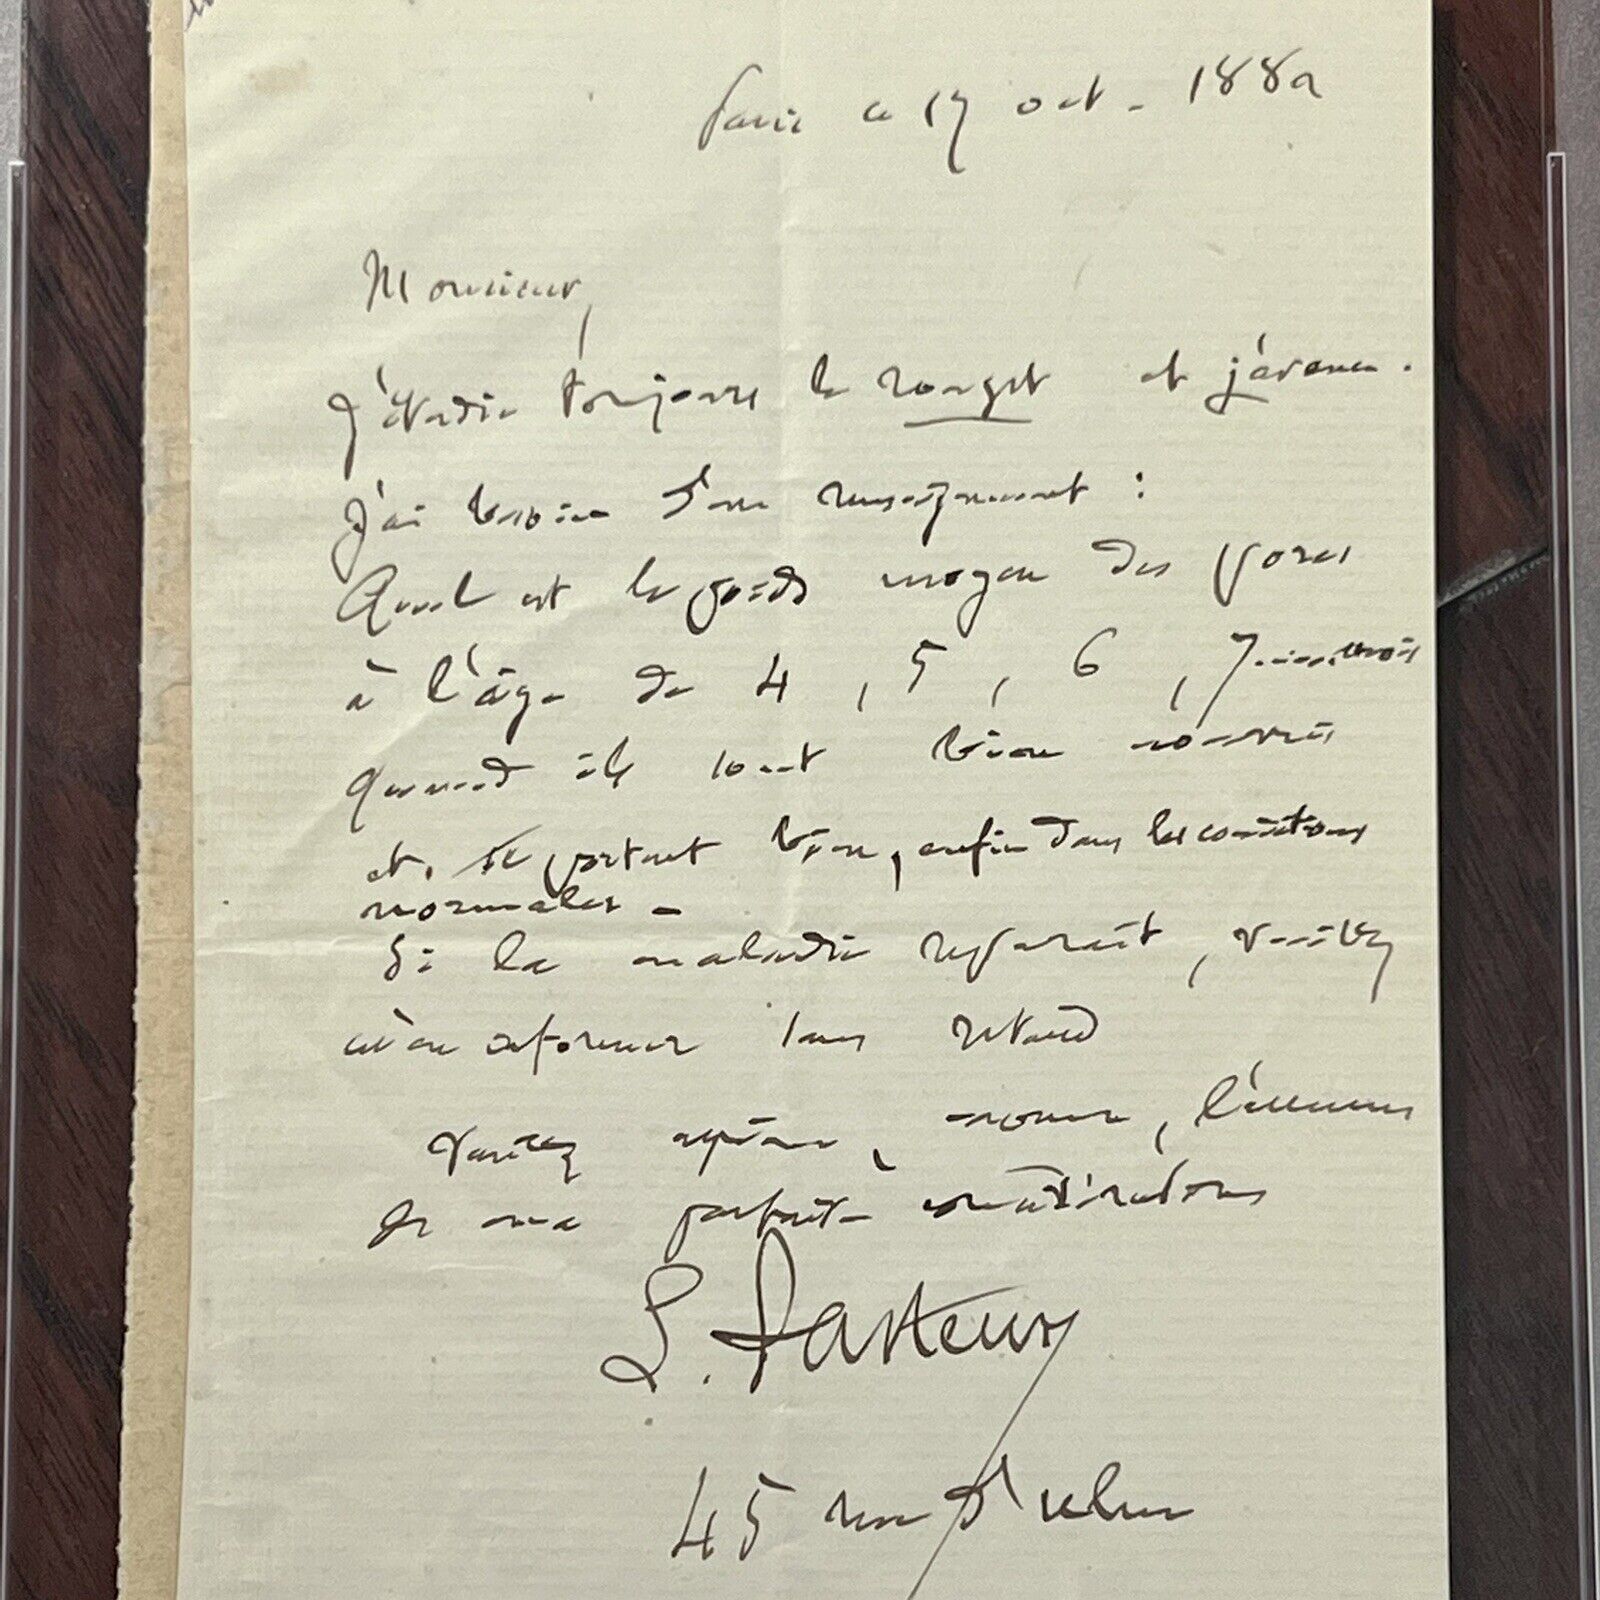 Paris ce 17 oct. 1882
Monsieur,
J'étudie toujours le rouget et j'avance.
J'ai besoin d'un renseignement :
Quel est le poids moyen des porcs
à l'âge de 4, 5, 6, 7 mois
quand ils sont bien nourris
et se portent bien, enfin dans les conditions
normales -
Si la maladie reparait, veuillez
m'en informer sans retard
Veuillez agréer, monsieur, l'assurance
de ma parfaite considération
L. Pasteur
45 rue d'Ulm